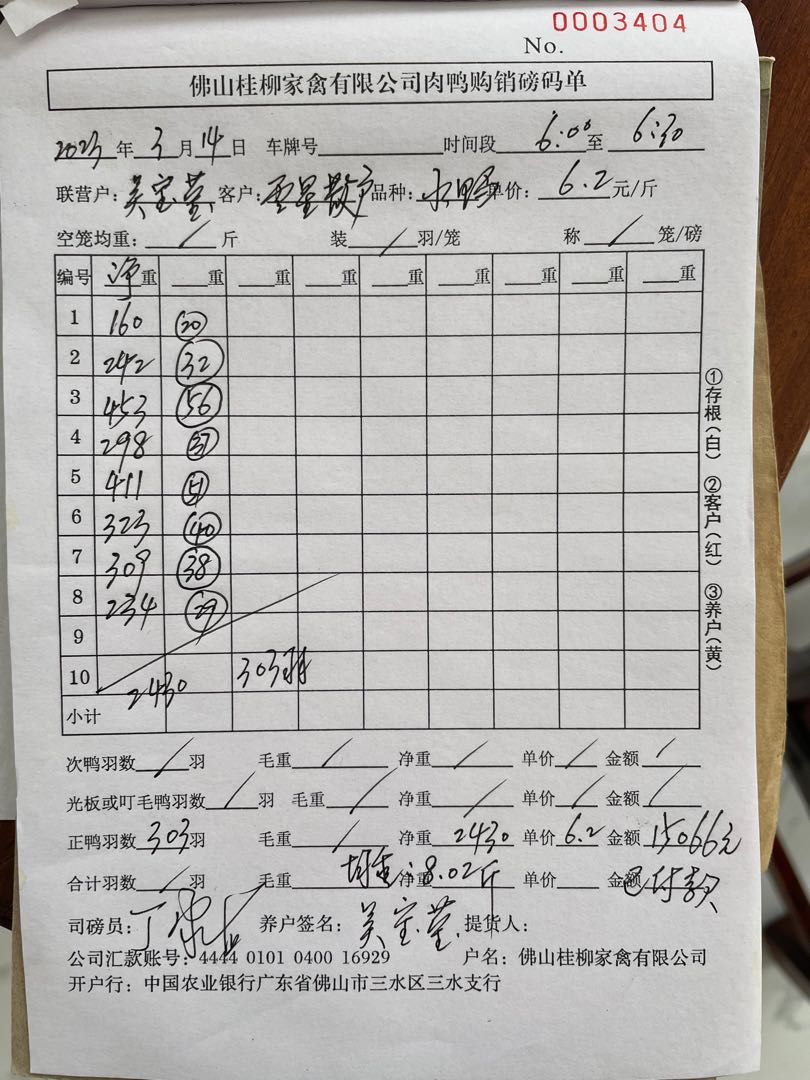 0003404
No.
佛山桂柳家禽有限公司肉鸭购销磅码单
2023年3月14日 车牌号 时间段 6:00至 6:30
联营户: 吴宝莹 客户: 星散户 品种: 水鸭 单价: 6.2元/斤
空笼均重: / 斤 装 / 羽/笼 称 / 笼/磅
编号 净重 重 重 重 重 重 重 重 重
1 160 20
2 242 32
3 453 56
4 298 37
5 411 51
6 323 40
7 309 38
8 234 29
9
10 2430 303羽
小计
①存根(白) ②客户(红) ③养户(黄)
次鸭羽数 / 羽 毛重 / 净重 / 单价 / 金额 /
光板或叮毛鸭羽数 / 羽 毛重 / 净重 / 单价 / 金额 /
正鸭羽数 303羽 毛重 / 净重 2430 单价 6.2 金额 15066元
合计羽数 / 羽 毛重 均重: 净重 8.02斤 单价 金额 已付款
司磅员: 养户签名: 吴宝莹 提货人:
公司汇款账号: 4444 0101 0400 16929 户名: 佛山桂柳家禽有限公司
开户行: 中国农业银行广东省佛山市三水区三水支行